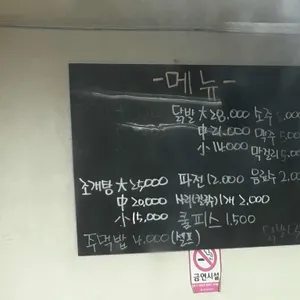 -메뉴-
닭발 大 28.000 소주
中 21.000 맥주 5.00
小 14.000 막걸리 5.00
조개탕 大 25000 파전 12.000 음료수 2.00
中 20,000 사리(칼국수)1개 2.000
小 15,000 쿨피스 1.500
주먹밥 4.000 (셀프)
금연시설